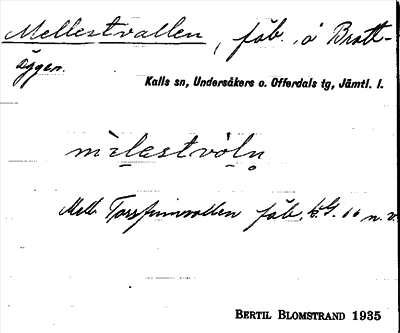 Mellestvallen, fäb. å Bratt-
äggen.
Kalls sn, Undersåkers o. Offerdals tg, Jämtl. l.
Mell. Torsfinnvallen fäb.
BERTIL BLOMSTRAND 1935